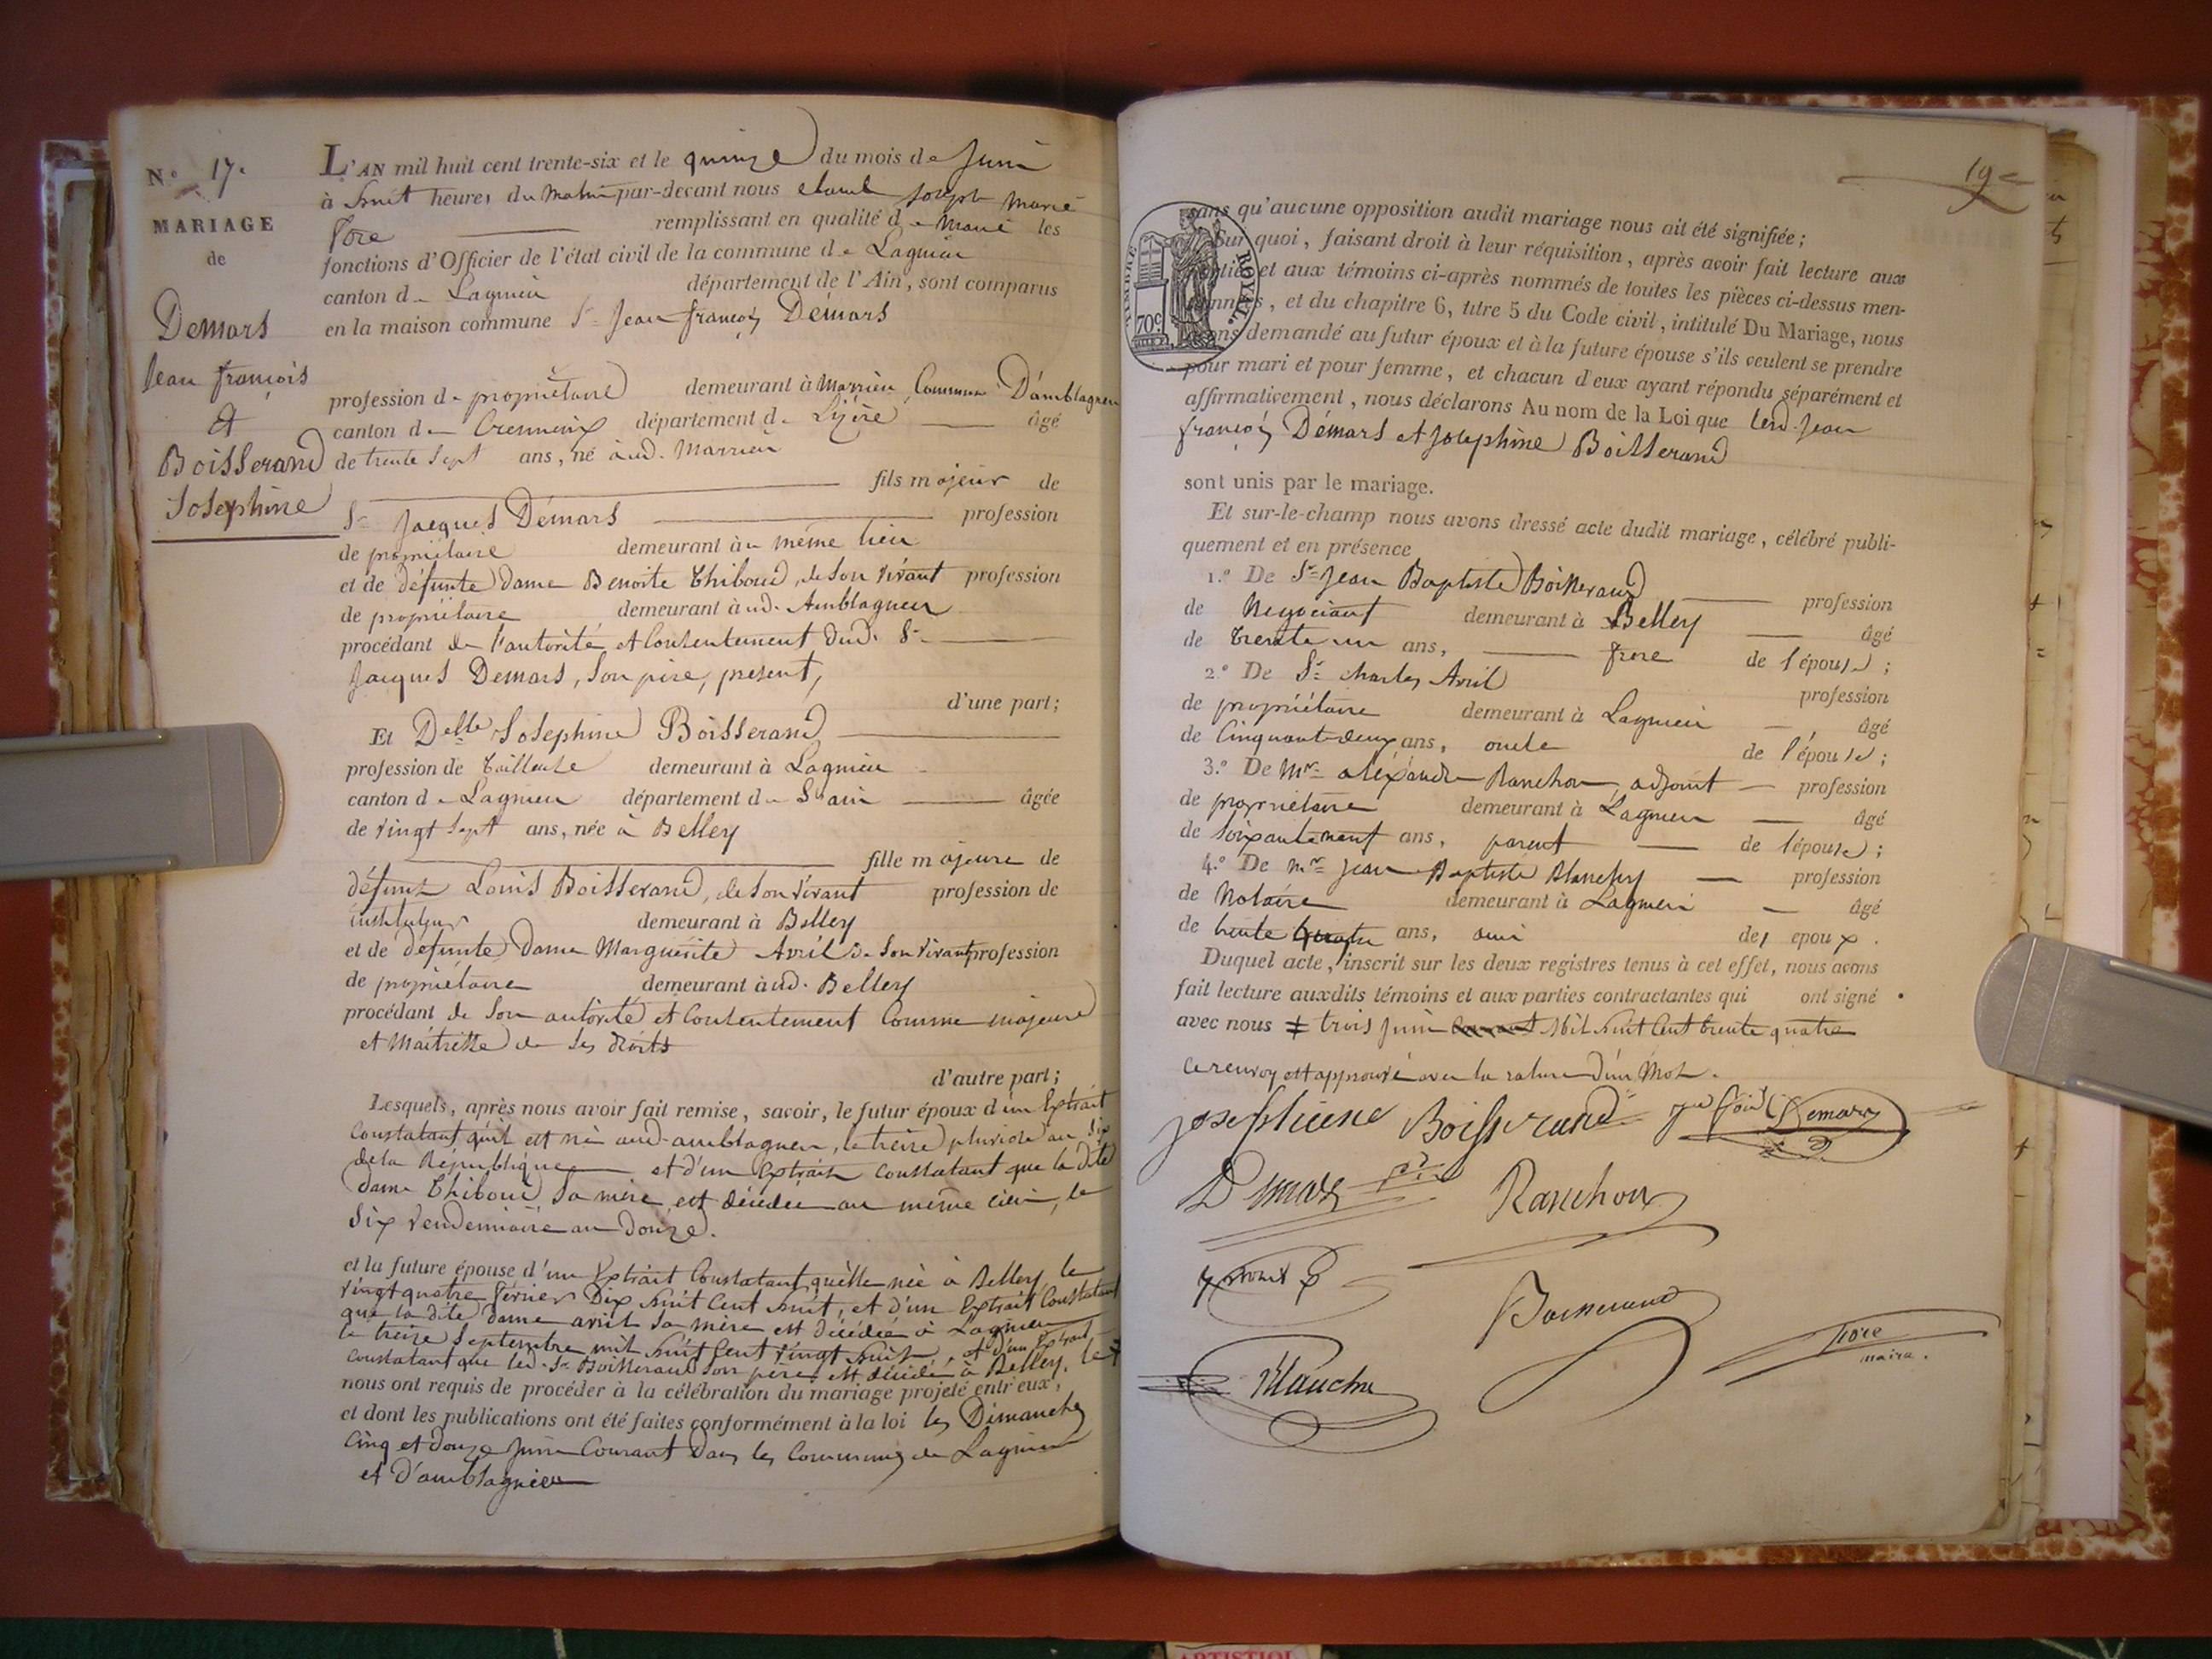 N.o 17.
MARIAGE
de
Demars
Jean françois
et
Boisserand
Josephine
L'AN mil huit cent trente-six et le quinze du mois de Juin
à huit heures du matin par-devant nous claude Joseph Marie
fore remplissant en qualité de Maire les
fonctions d'Officier de l'état civil de la commune de Lagnieu
canton de Lagnieu département de l'Ain, sont comparus
en la maison commune Sr Jean françois Démars
profession de propriétaire demeurant à Marrieu, Commune D'amblagneu
canton de Cremieux département de L'izère âgé
de trente sept ans, né aud. Marrieu
fils majeur de
Sr Jacques Démars profession
de propriétaire demeurant au même lieu
et de défunte dame Benoite Thiboud, de son vivant profession
de propriétaire demeurant aud. Amblagneu
procédant de l'autorité et Consentement dud. Sr
Jacques Demars, son père, présent,
d'une part;
Et Delle Josephine Boisserand
profession de tailleuse demeurant à Lagnieu
canton de Lagnieu département de L'ain âgée
de vingt sept ans, née à Belley
fille majeure de
défunt Louis Boisserand, de son vivant profession de
instituteur demeurant à Belley
et de defunte Dame Marguerite Avril de son vivant profession
de propriétaire demeurant aud. Belley
procédant de son autorité et Consentement Comme majeure
et Maitresse de ses droits
d'autre part;
Lesquels, après nous avoir fait remise, savoir, le futur époux d'un Extrait
Constatant qu'il est né aud. amblagneu, le treize pluviose an six
de la République et d'un Extrait Constatant que la dite
dame Thiboud sa mère, est décédée au même lieu, le
six Vendemiaire an Douze.
et la future épouse d'un Extrait Constatant qu'elle née à Belley le
vingt quatre fevrier Dix huit Cent huit, et d'un Extrait Constatant
que la dite dame avril sa mère est décédée à Lagnieu
le treize Septembre mil huit Cent vingt huit, et d'un Extrait
Constatant que led. Sr Boisserand son père est décédé à Belley, le ‡
nous ont requis de procéder à la célébration du mariage projeté entr'eux,
et dont les publications ont été faites conformément à la loi les Dimanches
Cinq et douze Juin Courant Dans les Communes de Lagnieu
et D'amblagnieu
19
TIMBRE ROYAL.
70c
sans qu'aucune opposition audit mariage nous ait été signifiée;
Sur quoi, faisant droit à leur réquisition, après avoir fait lecture aux
parties et aux témoins ci-après nommés de toutes les pièces ci-dessus men-
tionnées, et du chapitre 6, titre 5 du Code civil, intitulé Du Mariage, nous
avons demandé au futur époux et à la future épouse s'ils veulent se prendre
pour mari et pour femme, et chacun d'eux ayant répondu séparément et
affirmativement, nous déclarons Au nom de la Loi que led. Jean
françois Démars et Josephine Boisserand
sont unis par le mariage.
Et sur-le-champ nous avons dressé acte dudit mariage, célébré publi-
quement et en présence
1.o De Sr Jean Baptiste Boisserand profession
de Negociant demeurant à Belley âgé
de trente un ans, frere de l'épouse;
2.o De Sr charles Avril profession
de propriétaire demeurant à Lagnieu âgé
de Cinquante deux ans, oncle de l'épouse;
3.o De Mr alexandre Ranchon, adjoint profession
de propriétaire demeurant à Lagnieu âgé
de soixante neuf ans, parent de l'épouse;
4.o De Mr Jean Baptiste Blanchy profession
de Notaire demeurant à Lagnieu âgé
de trente quatre ans, ami des epoux.
Duquel acte, inscrit sur les deux registres tenus à cet effet, nous avons
fait lecture auxdits témoins et aux parties contractantes qui ont signé
avec nous ‡ trois Juin Mil huit Cent trente quatre
Ce renvoy est approuvé avec la rature d'un Mot.
Josephiene Boisserand Demars
Demars Ranchon
Boisserand
fore
maire.
Blanchy